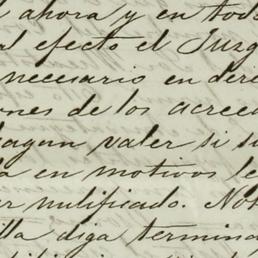 ahora y en todo
al efecto el Juzg
necesario en dere
ones de los acreed
hagan valer si si
a en motivos le
ar nulificado. Not
lla diga termina